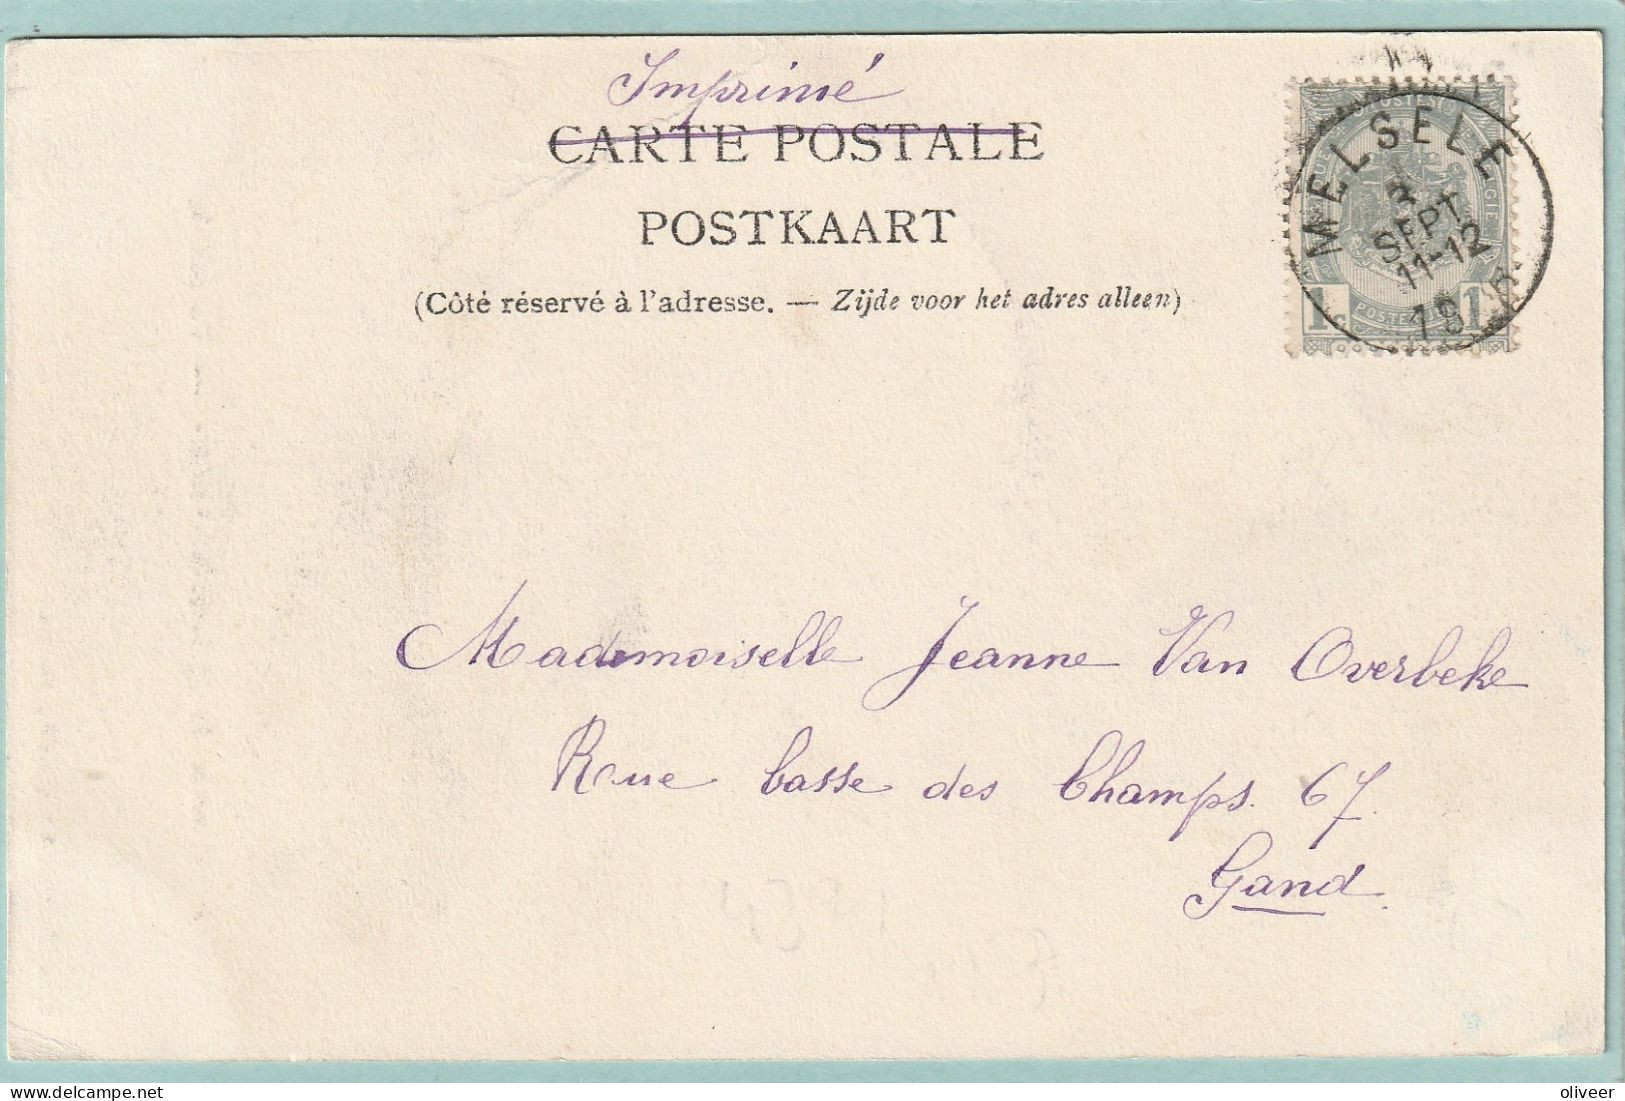 Imprimé
CARTE POSTALE
POSTKAART
(Côté réservé à l'adresse. — Zijde voor het adres alleen)
MELSELE
3
SEPT
11-12
18
1c 1
Mademoiselle Jeanne Van Overbeke
Rue basse des Champs. 67.
Gand.
oliveer